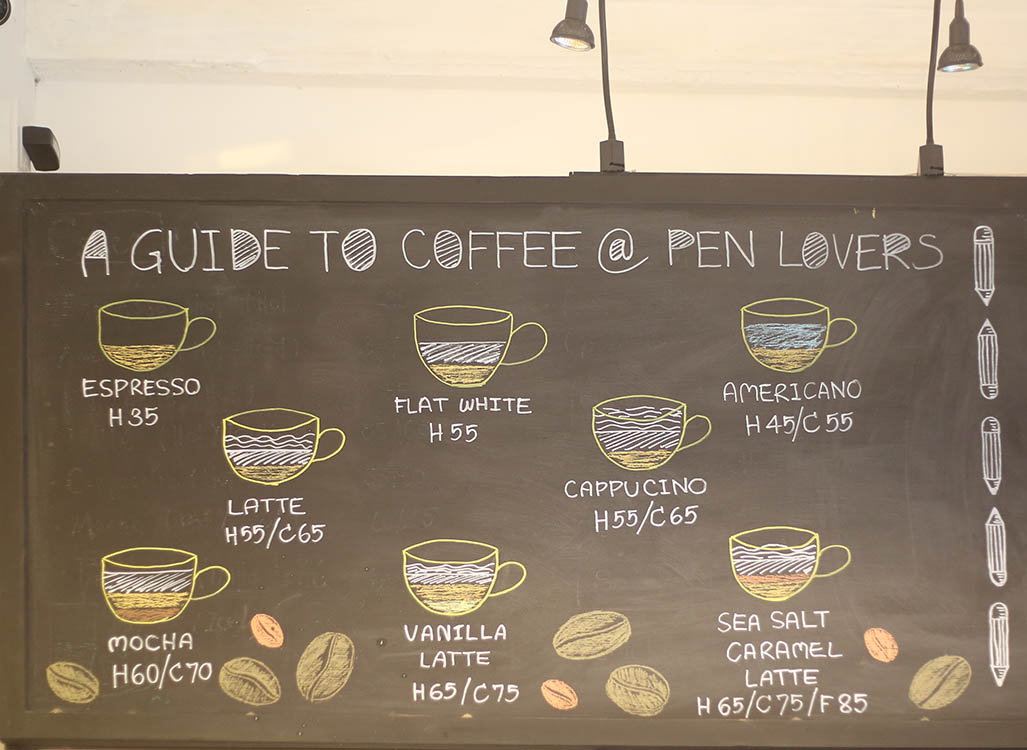 A GUIDE TO COFFEE @ PEN LOVERS
ESPRESSO
H35
FLAT WHITE
H55
AMERICANO
H45/C55
LATTE
H55/C65
CAPPUCINO
H55/C65
MOCHA
H60/C70
VANILLA
LATTE
H65/C75
SEA SALT
CARAMEL
LATTE
H65/C75/F85